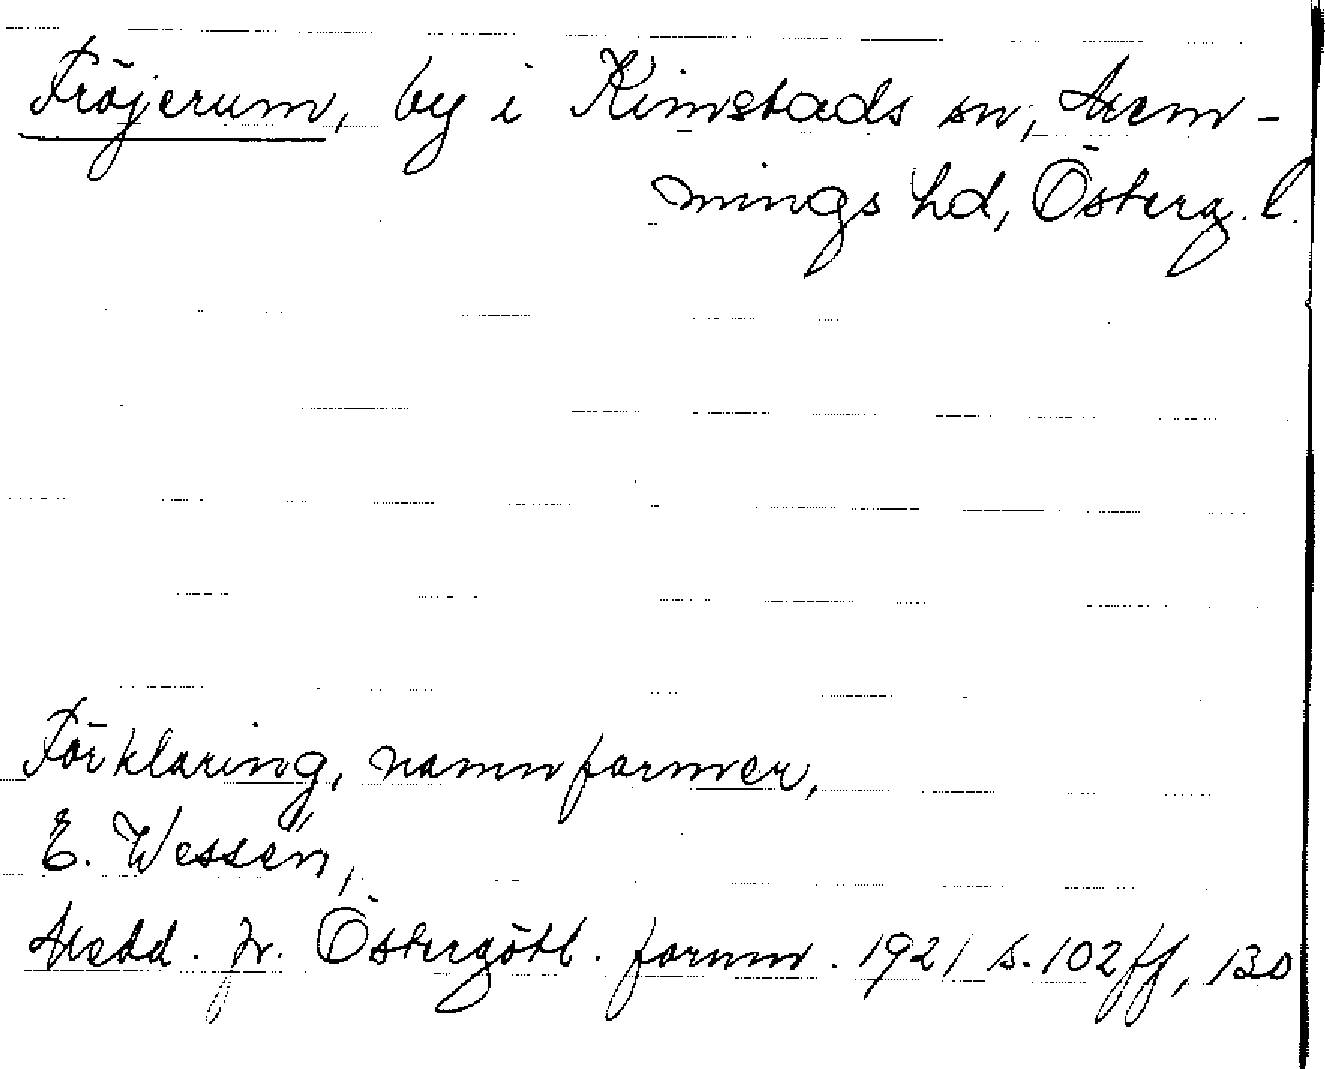 Fröjerum, by i Kimstads sn, Mem-
mings hd, Österg. l.
Förklaring, namnformer,
E. Wessén,
Medd. fr. Östergötl. fornm. 1921 s. 102ff, 130